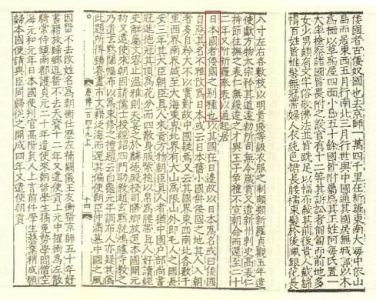 倭國者古倭奴國也去京師一萬四千里在新羅東南大海中依山
島而居東西五月行南北三月行世與中國通其國居無城郭以木
為柵以草為屋四面小島五十餘國皆附屬焉其王姓阿每氏置一
大率檢察諸國皆畏附之設官有十二等其訴訟者匍匐而前地多
女少男頗有文字俗敬佛法並皆跣足以幅布蔽其前後貴人戴錦
帽百姓皆椎髻無冠帶婦人衣純色裙長腰襦束髮於後佩銀花長
八寸左右各數枝以明貴賤等級衣服之制頗類新羅貞觀五年遣
使獻方物太宗矜其道遠敕所司無令歲貢又遣新州刺史高表仁
持節往撫之表仁無綏遠之才與王子爭禮不宣朝命而還至二十
二年又附新羅奉表以通起居
日本國者倭國之別種也以其國在日邊故以日本為名或曰倭國
自惡其名不雅改為日本或云日本舊小國併倭國之地其人入朝
者多自矜大不以實對故中國疑焉又云其國界東西南北各數千
里西界南界咸至大海東界北界有大山為限山外即毛人之國長
安三年其大臣朝臣真人來貢方物朝臣真人者猶中國戶部尚書
冠進德冠其頂為花分而四散身服紫袍以帛為腰帶真人好讀經
史解屬文容止溫雅則天宴之於麟德殿授司膳卿放還本國開元
初又遣使來朝因請儒士授經詔四門助教趙玄默就鴻臚寺教之
乃遣玄默闊幅布以為束修之禮題云白龜元年調布人亦疑其偽
此題所得錫賚盡市文籍泛海而還其偏使朝臣仲滿慕中國之風
因留不去改姓名為朝衡仕歷左補闕儀王友衡留京師五十年好
書籍放歸鄉逗留不去天寶十二年又遣使貢上元中擢衡為左散
騎常侍鎮南都護貞元二十年遣使來朝留學生橘逸勢學問僧空
海元和元年日本國使判官高階真人上言前件學生藝業稍成願
歸本國便請與臣同歸從之開成四年又遣使朝貢